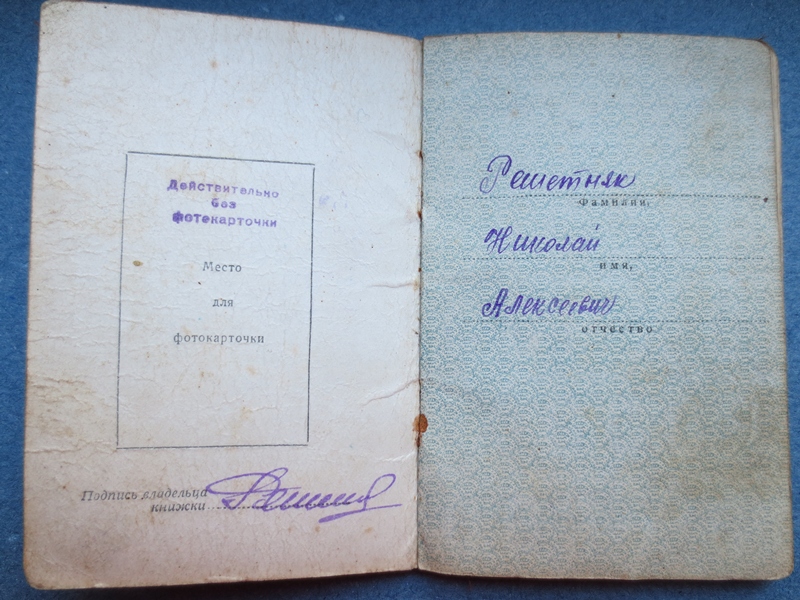 Действительно
без
фотекарточки
Место
для
фотокарточки
Подпись владельца
книжки
Решетняк
Фамилия,
Николай
имя,
Алексеевич
отчество